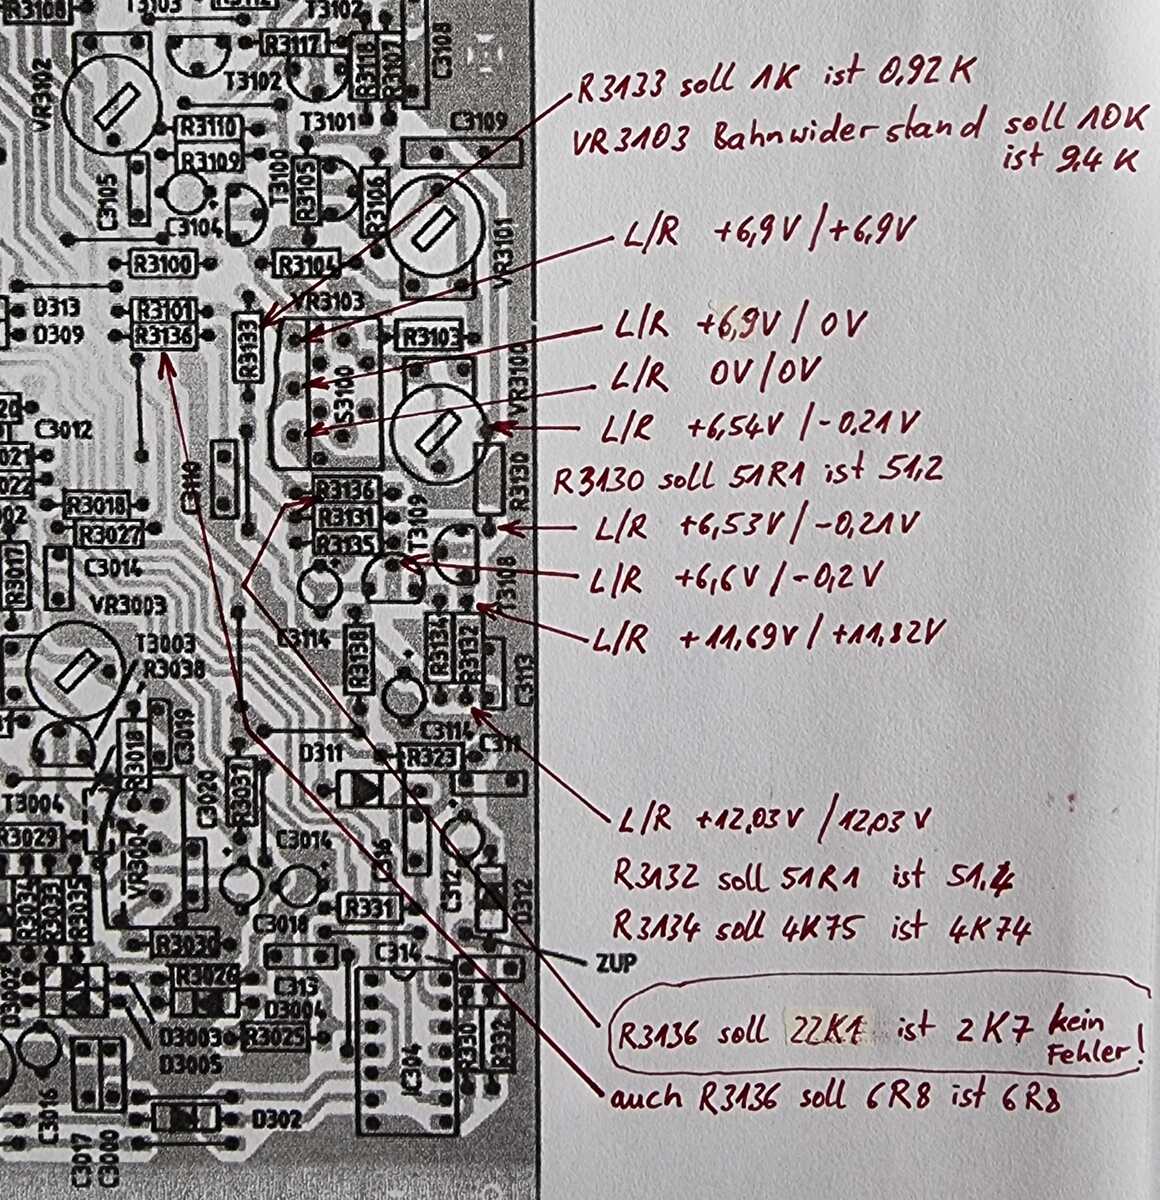 R3108
T3103
R3112
T3102
R3117
R3118
R3107
C3108
VR3102
T3102
T3101
C3109
R3110
R3109
T3100
R3105
R3106
C3105
C3104
VR3101
R3100
R3104
D313
R3101
VR3103
D309
R3136
R3133
R3103
VR3100
IS3100
C3012
C3110
R3136
R3130
R3018
R3131
T3109
R3027
R3135
R3017
C3014
T3108
VR3003
C3114
R3138
R3134
R3132
C3113
T3003
R3038
C3019
R3018
C3114
C311
D311
R323
T3004
C3020
R3037
C3014
R3029
VR3004
C316
R3034
R3033
R3035
C3018
R331
C312
D312
R3030
C314
ZUP
D3002
R3026
C313
D3004
D3003
R3025
D3005
IC304
R330
R332
C3016
D302
C3017
C3000
R3133 soll 1K ist 0,92K
VR3103 Bahnwiderstand soll 10K
ist 9,4K
L/R +6,9V / +6,9V
L/R +6,9V / 0V
L/R 0V/0V
L/R +6,54V / -0,21V
R3130 soll 51R1 ist 51,2
L/R +6,53V / -0,21V
L/R +6,6V / -0,2V
L/R +11,69V / +11,82V
L/R +12,03V / 12,03V
R3132 soll 51R1 ist 51.4
R3134 soll 4K75 ist 4K74
R3136 soll 22K1 ist 2K7 kein
Fehler!
auch R3136 soll 6R8 ist 6R8